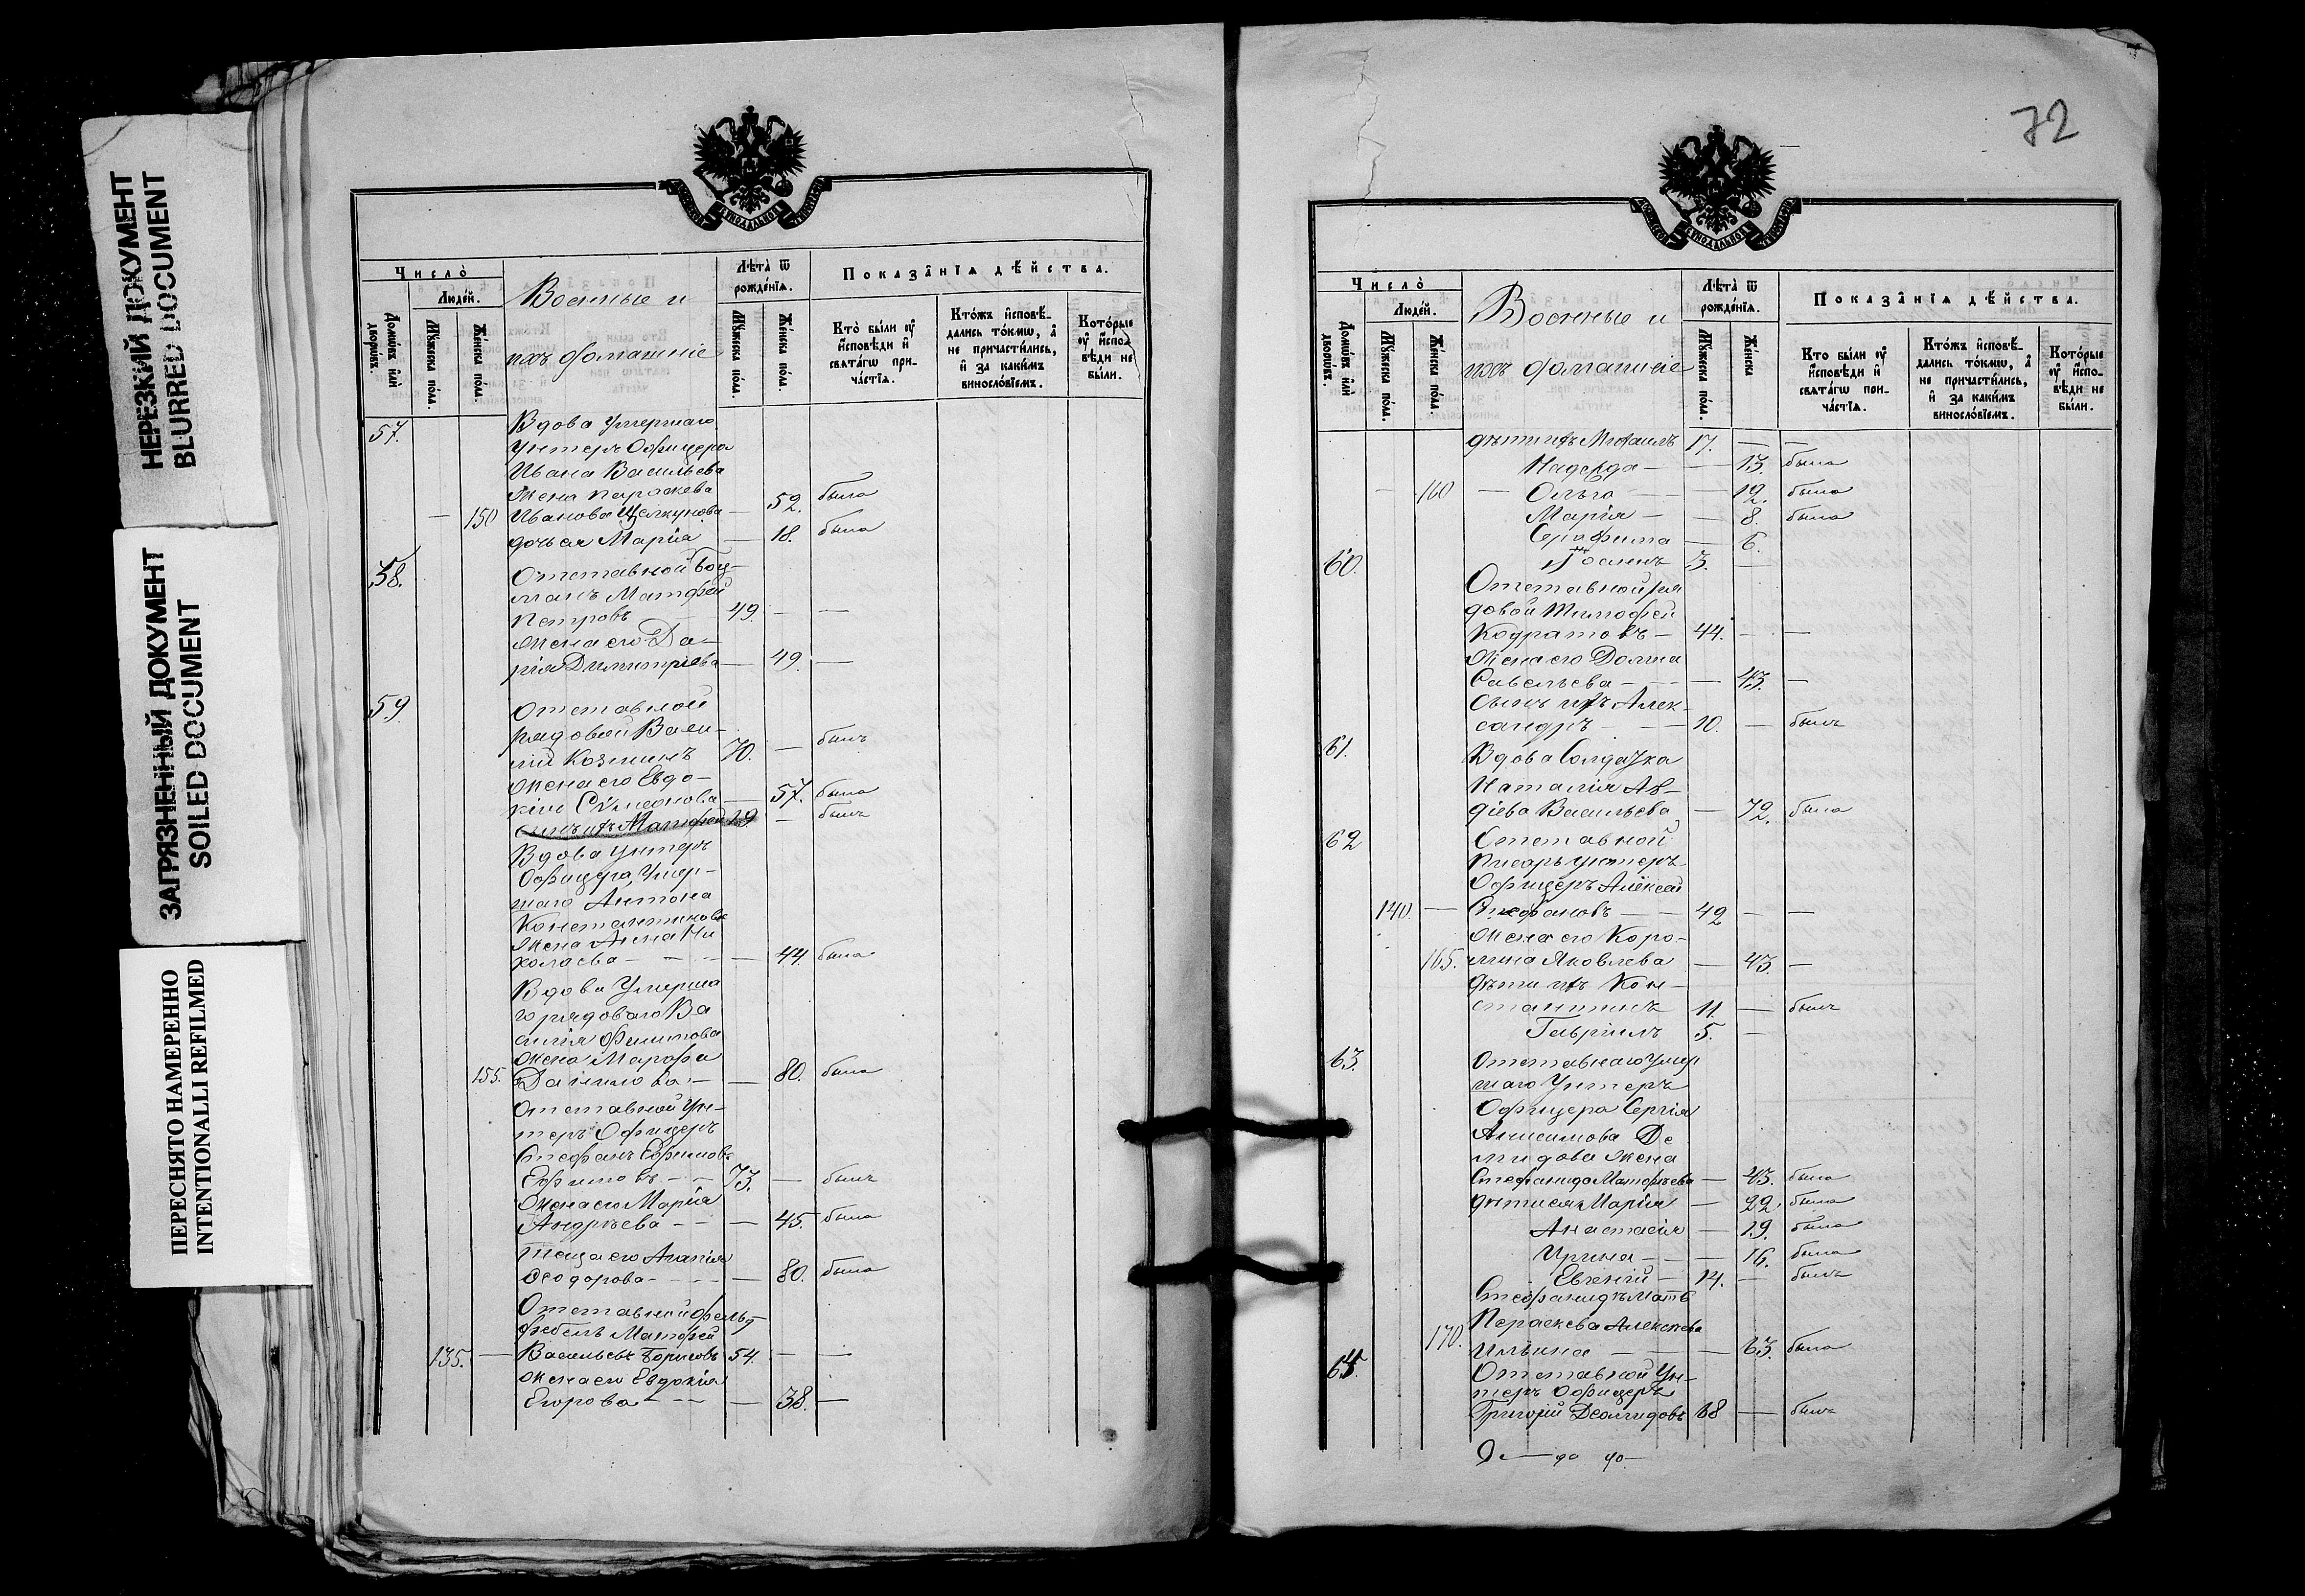 НЕРЕЗКИЙ ДОКУМЕНТ
BLURRED DOCUMENT
ЗАГРЯЗНЕННЫЙ ДОКУМЕНТ
SOILED DOCUMENT
ПЕРЕСНЯТО НАМЕРЕННО
INTENTIONALLI REFILMED
Число̀
Людей.
Домѡвъ илѝ дворѡвъ.
Мꙋжеска пола.
Женска пола.
Военные и
ихъ домашніе
Лѣта̀ ѿ рожденїѧ.
Мꙋжеска пола.
Женска пола.
Показанїѧ дѣйства.
Кто̀ были оу҆
и҆сповѣди и҆
свѧтагѡ при-
частїѧ.
Ктожъ и҆сповѣ-
дались токмѡ, а҆
не причастились,
и҆ за какимъ
винословїемъ.
Которые
оу҆ и҆спо-
вѣди не
были.
57. Вдова Умершаго
Унтеръ Офицера
Ивана Васильева
Жена Параскева
— 150 Иванова Щелкунова — 52. была
дочь ея Марія — 18. была
58. Отставной Боц-
манъ Матфей
Петровъ 49. — —
Жена его Да-
рія Димитріева — 49. —
59. Отставной
рядовой Васи-
лій Козминъ 70. — былъ
Жена его Евдо-
кія Сѵмеонова — 57. была
сынъ ихъ Матфей 19 — былъ
Вдова Унтеръ
Офицера, Умер-
шаго Антона
Константинова
Жена Анна Ни
колаева — — 44. была
Вдова Умерша
го рядоваго Ва
силія Филипова
Жена Марфа
155. Данилова — — 80. была
Отставной Ун-
теръ Офицеръ
Стефанъ Ефимовъ
Ефимовъ — — 73. — былъ
Жена его Марія
Андреева — — 45. была
Теща его Агапія
Ѳеодорова — — 80. была
Отставной фельд
фебель Матфей
135. — Васильевъ Борисовъ 54. — —
Жена его Евдокія
Егорова — — 38. —
72
Число̀
Людей.
Домѡвъ илѝ дворѡвъ.
Мꙋжеска пола.
Женска пола.
Военные и
ихъ домашніе
Лѣта̀ ѿ рожденїѧ.
Мꙋжеска пола.
Женска
Показанїѧ дѣйства.
Кто были оу҆
и҆сповѣди и҆
свѧтагѡ при-
частїѧ.
Ктожъ и҆сповѣ-
дались токмѡ, а҆
не причастились,
и҆ за какимъ
винословїемъ.
Которые
оу҆ и҆спо-
вѣди не
были.
дѣти ихъ Михаилъ 17. — —
Надежда — — 13. была
— 160 — Ольга — — 12. была
Марія — — 8. была
Серафима — 6.
Іоаннъ 3. —
60. Отставной ря
довой Тимофей
Кодратовъ — 44. — —
Жена его Домна
Савельева — — 43. —
сынъ ихъ Алек-
сандръ — — 10. — былъ
61. Вдова Солдатка
Наталія Ав-
діева Васильева — 72. была
62 Отставной
Писарь унтеръ
Офицеръ Алексей
140. — Стефановъ — — 42 — —
Жена его Каро-
165. лина Яковлева — 43. —
дѣти ихъ Кон-
стантинъ 11. — былъ
Гавріилъ 5. —
63. Отставнаго Умер
шаго Унтеръ
Офицера Сергія
Анисимова Де
мидова Жена
Стефанида Матфеева — 43. была
дѣти ея Марія — 22. была
Анастасія — 19. была
Ирина — — 16. была
Евгеній — 14. — былъ
Стефаниды Мать
Параскева Алексеева
170. Ильина — — — 63. была
64. Отставной Ун-
теръ Офицеръ
Григорій Деомидовъ 68 — былъ